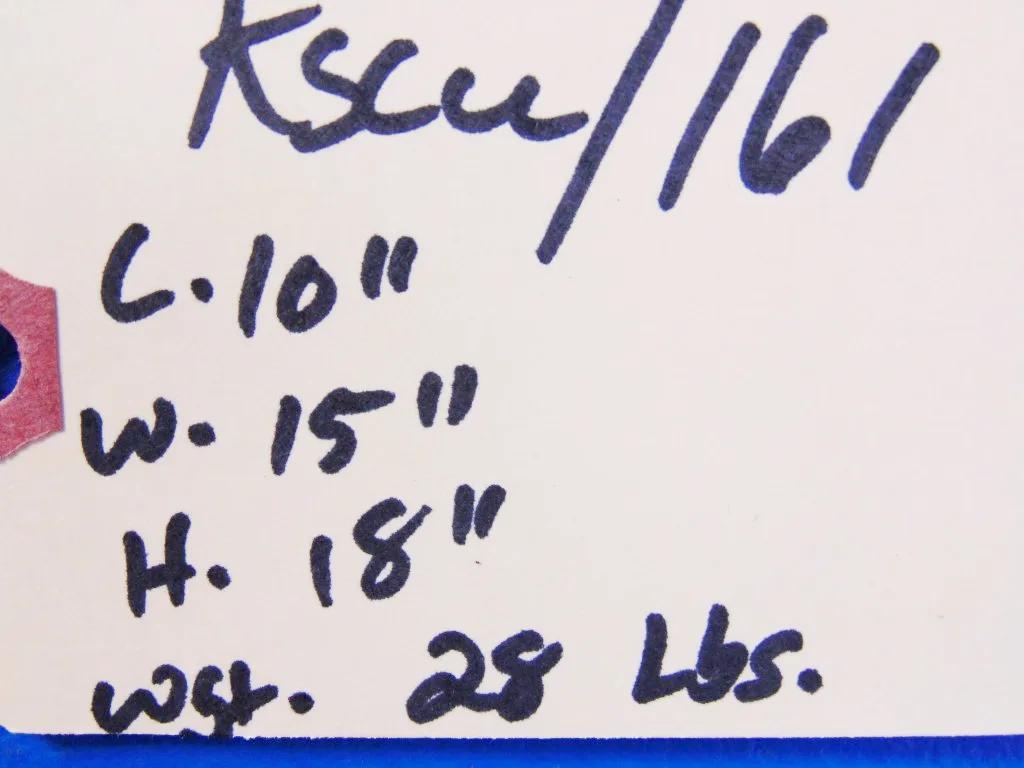 Kscu/161
L. 10"
W. 15"
H. 18"
wgt. 28 Lbs.